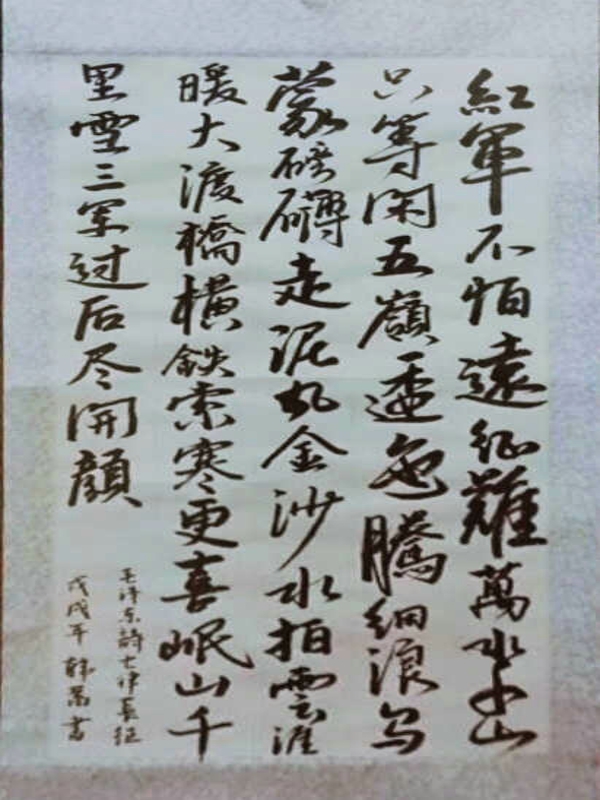 紅軍不怕遠征難萬水千山
只等闲五嶺逶迤騰細浪乌
蒙磅礴走泥丸金沙水拍雲涯
暖大渡橋横鉄索寒更喜岷山千
里雪三军过后尽開顔
毛泽东詩七律長征
戊戌年韩書